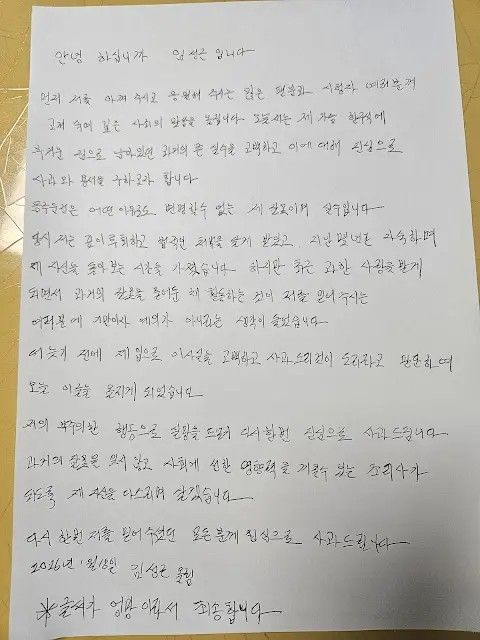 안녕 하십니까 임성근 입니다
먼저 저를 아껴 주시고 응원해 주시는 많은 팬분과 시청자 여러분께
고개 숙여 깊은 사죄의 말씀을 올립니다 오늘 저는 제 가슴 한구석에
무거운 짐으로 남아있던 과거의 큰 실수를 고백하고 이에 대해 진심으로
사과와 용서를 구하고자 합니다
음주운전은 어떤 이유로도 변명할수 없는 제 잘못이며 실수입니다
당시 저는 깊이 후회하고 법적인 처벌을 달게 받았고, 지난 몇년간 자숙하며
제 자신을 돌아보는 시간을 가졌습니다 하지만 최근 과한 사랑을 받게
되면서 과거의 잘못을 묻어둔 채 활동하는 것이 저를 믿어주시는
여러분께 기만이자 예의가 아니라는 생각이 들었습니다
더 늦기 전에 제 입으로 이사실을 고백하고 사과드리는것이 도리라고 판단하여
오늘 이글을 올리게 되었습니다
저의 부주의한 행동으로 실망을 드려 다시한번 진심으로 사과드립니다
과거의 잘못을 잊지 않고 사회에 선한 영향력을 끼칠수 있는 조리사가
되도록 제 자신을 다스리며 살겠습니다
다시 한번 저를 믿어 주셨던 모든 분께 진심으로 사과드립니다
2026년 1월 18일 임성근 올림
※글씨가 엉망 이라서 죄송합니다